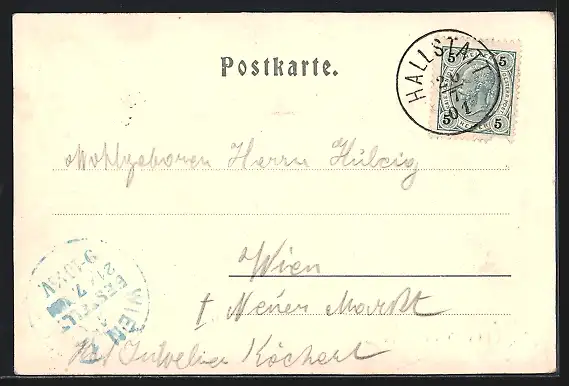 Postkarte.
HALLSTATT
20/7
01
5 5
5 5
Wohlgeboren Herrn Hülzig
Wien
I Neuer Markt
Juwelier Köchert
WIEN
BESTELLT
21. 7.
9-
V.